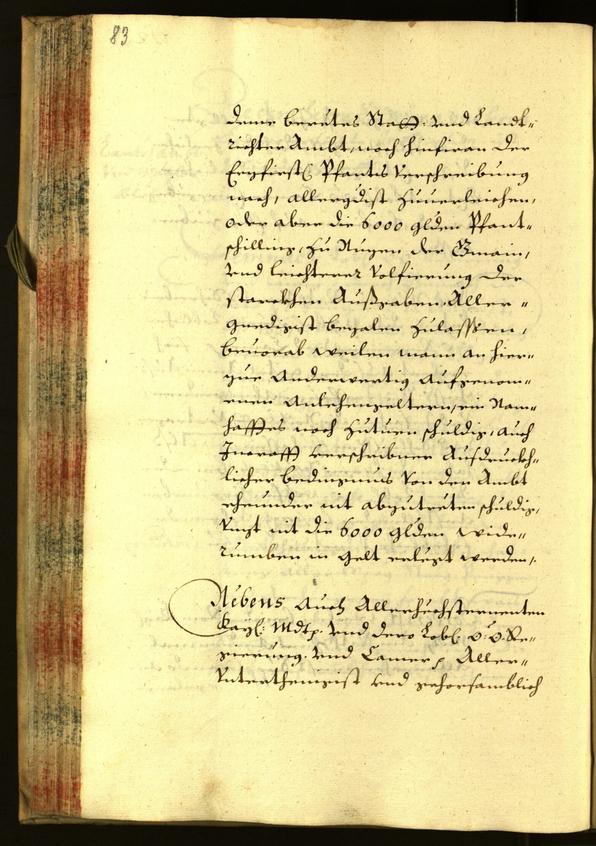 83
deme berürtes Statt: vnd Landt-
richter Ambt, noch hinfiran der
Erzfirstl: Pfantts Verschreibung
nach, allergdist zuuerleichen,
oder aber die 6000 glden Pfant-
schilling, zu Nuzen der Gmain,
vnd leichterer Volfierung der
starckhen Außgaben, Aller-
gnedigist bezalen zulasssen,
beuorab weilen mann an hier-
zue Anderwertig aufgenom-
menen Anlehengeltern, ein Nam-
hafftes noch zutuen schuldig, auch
Incrafft verschribner Ausdruckh-
licher bedingnus von den Ambt
eheunder nit abzutretten schuldig,
Vnzt nit die 6000 glden wide-
rumben in gelt erlegt werden,
Nebens auch Allerhöchsternenten
Kayl: Mdt: vnd dero Lobl: O: Ö: Re-
gierung vnd Camer, Aller-
vnterthenigist vnd gehorsamblich